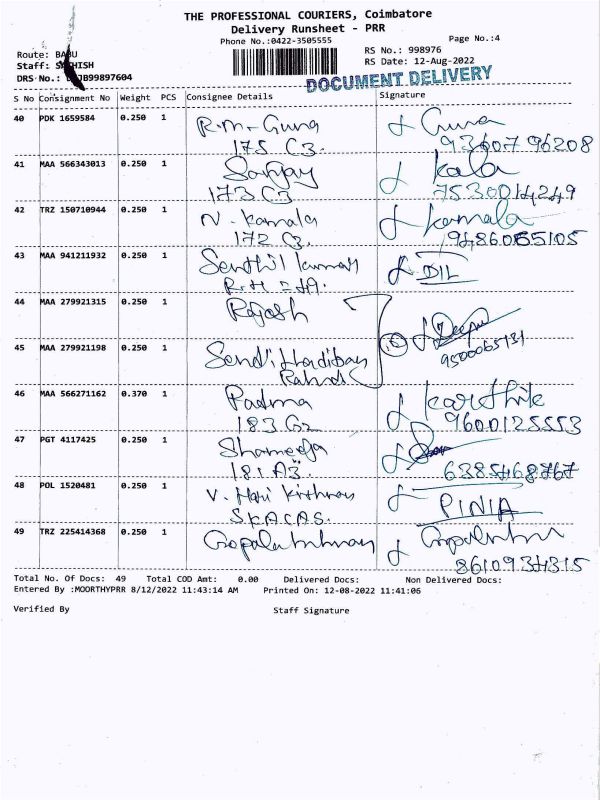 THE PROFESSIONAL COURIERS, Coimbatore
Delivery Runsheet - PRR
Phone No.:0422-3505555
Page No.:4
Route: BABU
RS No.: 998976
Staff: SATHISH
RS Date: 12-Aug-2022
DRS No.: JB99897604
DOCUMENT DELIVERY
S No Consignment No Weight PCS Consignee Details Signature
40 PDK 1659584 0.250 1 R.M. Guna Guna
175 C3. 93607 96208
41 MAA 566343013 0.250 1 Sanjay kala
173 C3 7530014249
42 TRZ 150710944 0.250 1 N. Kamala kamala
172 C3. 9486055105
43 MAA 941211932 0.250 1 Senthil kumar DIL
44 MAA 279921315 0.250 1 Rajesh Deepu
9500065131
45 MAA 279921198 0.250 1
46 MAA 566271162 0.370 1 Padma Karthik
183 G2 9600125553
47 PGT 4117425 0.250 1 Shameeja
181 A3. 6385468767
48 POL 1520481 0.250 1 V. Hari Krishnan
SKACAS.
49 TRZ 225414368 0.250 1 Gopalakrishnan
8610934315
Total No. Of Docs: 49 Total COD Amt: 0.00 Delivered Docs: Non Delivered Docs:
Entered By :MOORTHYPRR 8/12/2022 11:43:14 AM Printed On: 12-08-2022 11:41:06
Verified By Staff Signature